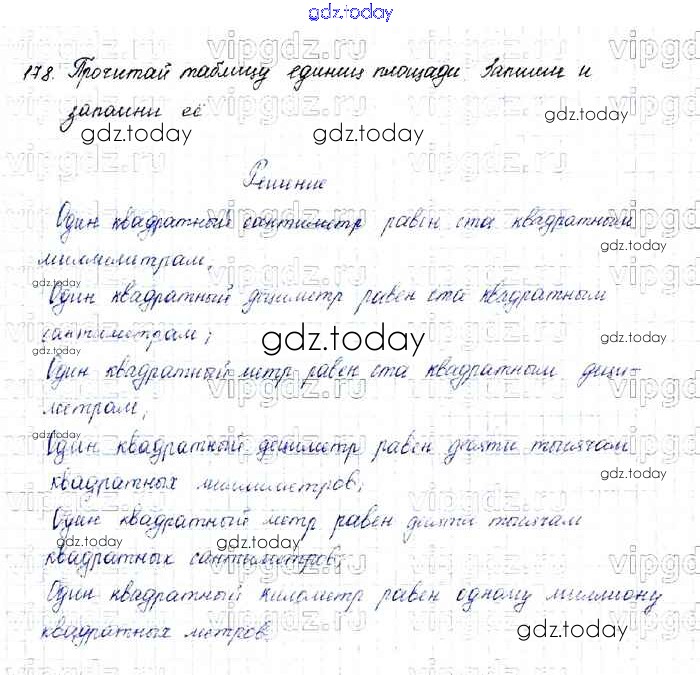 gdz.today
178. Прочитай таблицу единиц площади. Запиши и
запомни её
Решение
Один квадратный сантиметр равен ста квадратным
миллиметрам,
Один квадратный дециметр равен ста квадратным
сантиметрам;
Один квадратный метр равен ста квадратным деци-
метрам;
Один квадратный дециметр равен десяти тысячам
квадратных миллиметров;
Один квадратный метр равен десяти тысячам
квадратных сантиметров;
Один квадратный километр равен одному миллиону
квадратных метров